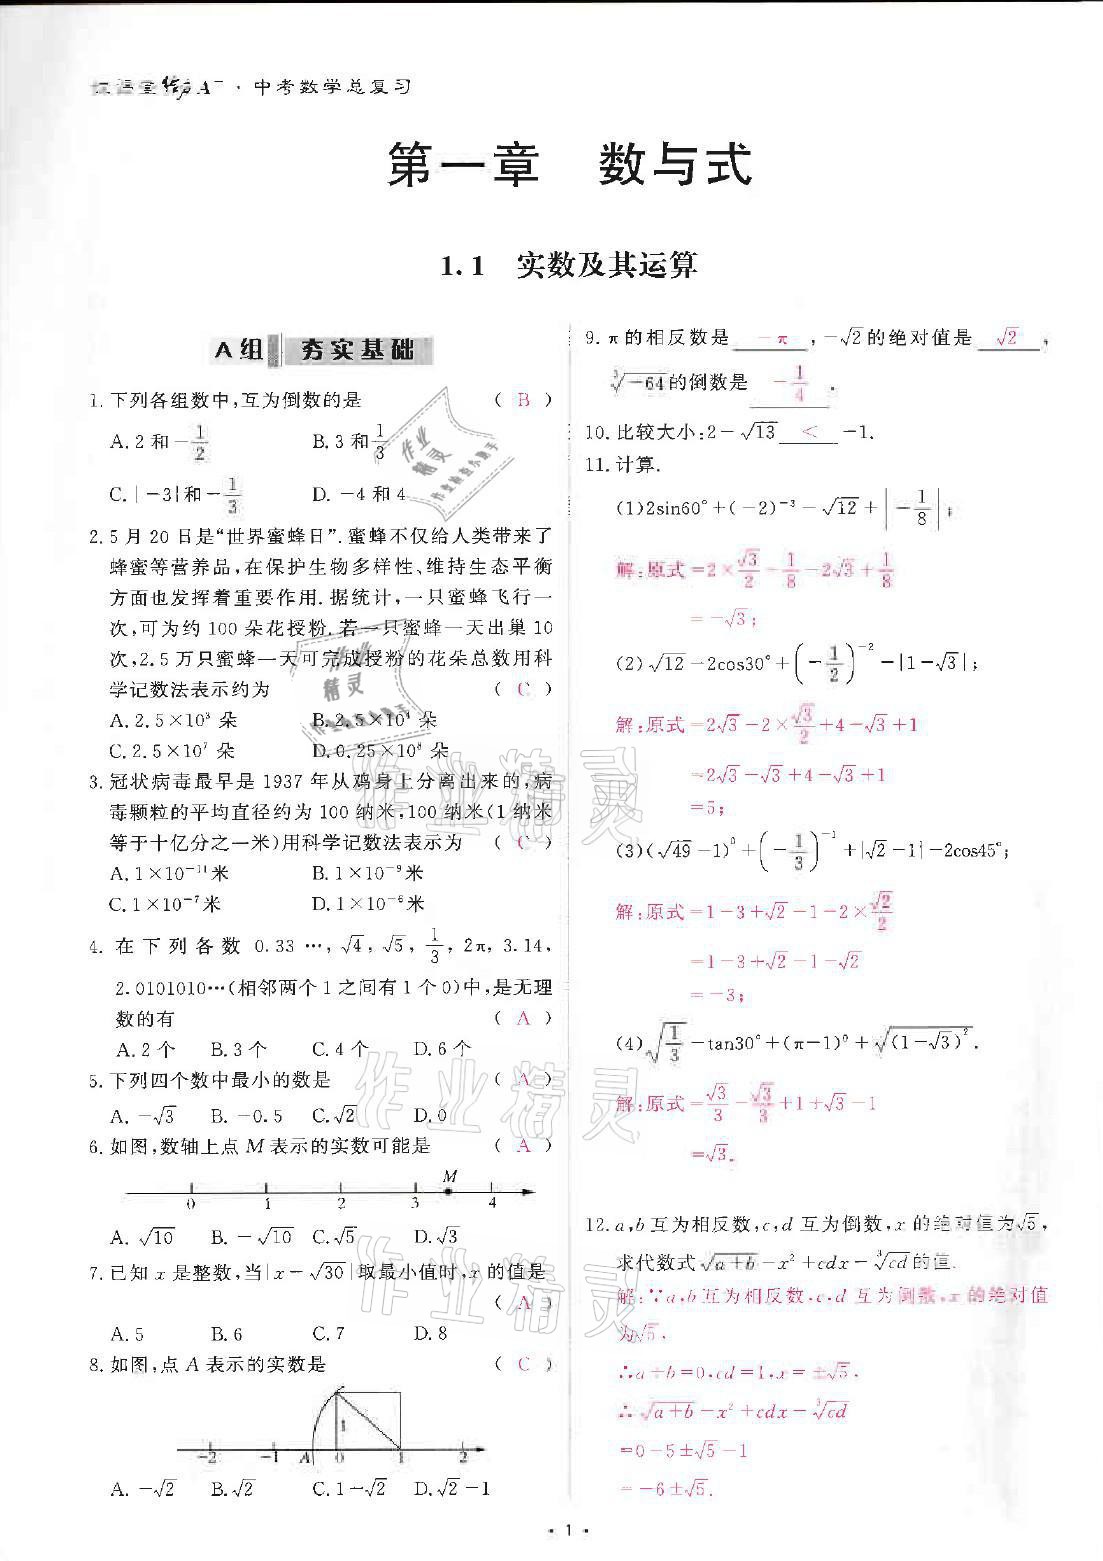 A⁻·中考数学总复习
第一章 数与式
1.1 实数及其运算
A组 夯实基础
1.下列各组数中,互为倒数的是 ( B )
A.2和-1/2 B.3和1/3
C.|-3|和-1/3 D.-4和4
2.5月20日是“世界蜜蜂日”.蜜蜂不仅给人类带来了
蜂蜜等营养品,在保护生物多样性、维持生态平衡
方面也发挥着重要作用.据统计,一只蜜蜂飞行一
次,可为约100朵花授粉.若一只蜜蜂一天出巢10
次,2.5万只蜜蜂一天可完成授粉的花朵总数用科
学记数法表示约为 ( C )
A.2.5×10³朵 B.2.5×10⁴朵
C.2.5×10⁷朵 D.0.25×10⁸朵
3.冠状病毒最早是1937年从鸡身上分离出来的,病
毒颗粒的平均直径约为100纳米,100纳米(1纳米
等于十亿分之一米)用科学记数法表示为 ( C )
A.1×10⁻¹¹米 B.1×10⁻⁹米
C.1×10⁻⁷米 D.1×10⁻⁶米
4.在下列各数0.33…,√4,√5,1/3,2π,3.14,
2.0101010…(相邻两个1之间有1个0)中,是无理
数的有 ( A )
A.2个 B.3个 C.4个 D.6个
5.下列四个数中最小的数是 ( A )
A.-√3 B.-0.5 C.√2 D.0
6.如图,数轴上点M表示的实数可能是 ( A )
M
0 1 2 3 4
A.√10 B.-√10 C.√5 D.√3
7.已知x是整数,当|x-√30|取最小值时,x的值是
( A )
A.5 B.6 C.7 D.8
8.如图,点A表示的实数是 ( C )
1
-2 -1 A 0 1 2
A.-√2 B.√2 C.1-√2 D.√2-1
9.π的相反数是 -π ,-√2的绝对值是 √2 ,
∛-64的倒数是 -1/4 .
10.比较大小:2-√13 < -1.
11.计算.
(1)2sin60°+(-2)⁻³-√12+|-1/8|;
解:原式=2×√3/2-1/8-2√3+1/8
=-√3;
(2)√12-2cos30°+(-1/2)⁻²-|1-√3|;
解:原式=2√3-2×√3/2+4-√3+1
=2√3-√3+4-√3+1
=5;
(3)(√49-1)⁰+(-1/3)⁻¹+|√2-1|-2cos45°;
解:原式=1-3+√2-1-2×√2/2
=1-3+√2-1-√2
=-3;
(4)√(1/3)-tan30°+(π-1)⁰+√((1-√3)²).
解:原式=√3/3-√3/3+1+√3-1
=√3.
12.a,b互为相反数,c,d互为倒数,x的绝对值为√5,
求代数式√(a+b)-x²+cdx-∛cd的值.
解:∵a,b互为相反数,c,d互为倒数,x的绝对值
为√5,
∴a+b=0,cd=1,x=±√5,
∴√(a+b)-x²+cdx-∛cd
=0-5±√5-1
=-6±√5.
·1·
作业精灵
作业精灵
作业精灵
作业精灵
作业检查小助手
作业精灵
作业检查小助手